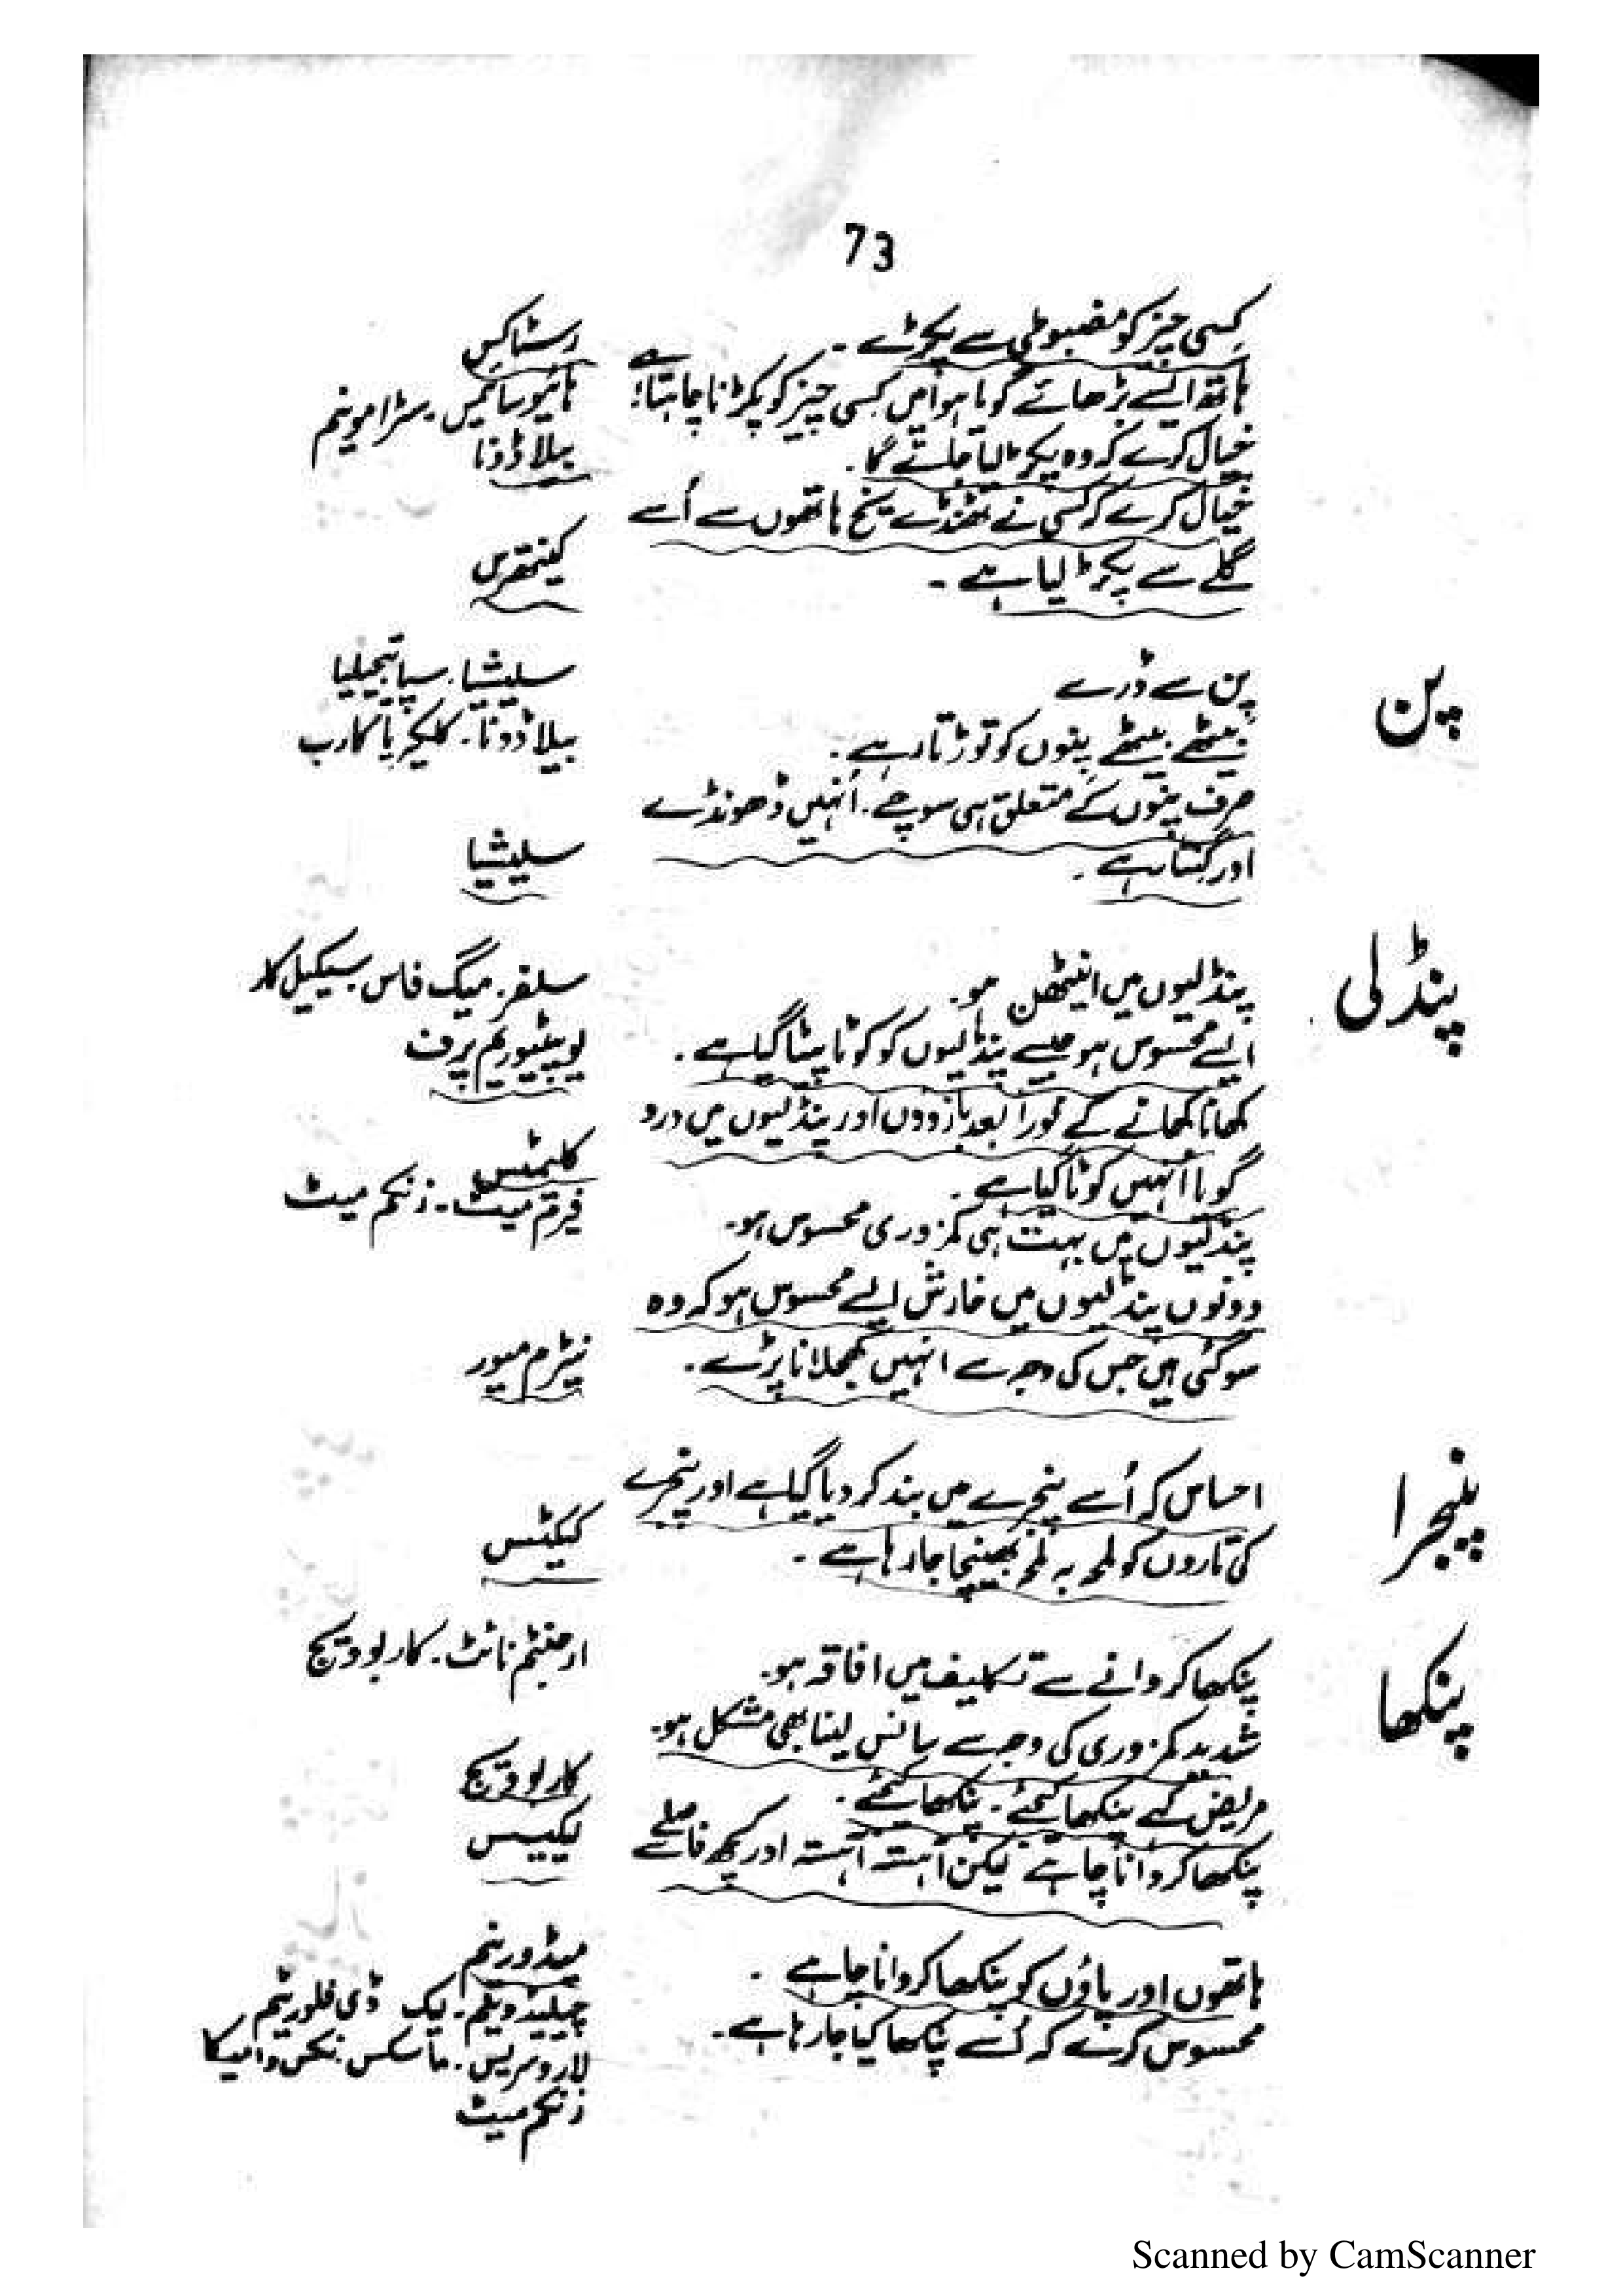 73
کسی چیز کو مضبوطی سے پکڑے ۔ رسٹاکس
ہاتھ ایسے بڑھائے گویا ہوا میں کسی چیز کو پکڑنا چاہتا ہے ہائیوسائمس ۔ سٹرامونیم
خیال کرے کہ وہ پکڑ لیا جائے گا ۔ بیلاڈونا
خیال کرے کہ کسی نے ٹھنڈے یخ ہاتھوں سے اُسے
گلے سے پکڑ لیا ہے ۔ کینتھرس
پن
پن سے ڈرے سلیشیا ۔ سپائیجیلیا
بیٹھے بیٹھے پنوں کو توڑتا رہے ۔ بیلاڈونا ۔ کلکیریا کارب
صرف پنوں کے متعلق ہی سوچے ۔ اُنہیں ڈھونڈے
اور گنتا رہے ۔ سلیشیا
پنڈلی
پنڈلیوں میں اینٹھن ہو ۔ سلفر ۔ میگ فاس ۔ سیکیل کار
ایسے محسوس ہو جیسے پنڈلیوں کو کوٹا پیٹا گیا ہے ۔ یوپیٹیوریم پرف
کھانا کھانے کے فوراً بعد بازووں اور پنڈلیوں میں درد
گویا اُنہیں کوٹا گیا ہے ۔ کلیمٹس
پنڈلیوں میں بہت ہی کمزوری محسوس ہو ۔ فیرم میٹ ۔ زنکم میٹ
دونوں پنڈلیوں میں خارش ایسے محسوس ہو کہ وہ
سو گئی ہیں جس کی وجہ سے انہیں کھجلانا پڑے ۔ نیٹرم میور
پنجرا
احساس کہ اُسے پنجرے میں بند کر دیا گیا ہے اور پنجرے
کی تاروں کو لمحہ بہ لمحہ بھینچا جا رہا ہے ۔ کیکٹس
پنکھا
پنکھا کروانے سے تکلیف میں افاقہ ہو ۔ ارجنٹم نائٹ ۔ کاربوویج
شدید کمزوری کی وجہ سے سانس لینا بھی مشکل ہو ۔
مریض کہے پنکھا کیجئے ۔ پنکھا کیجئے ۔ کاربوویج
پنکھا کروانا چاہے لیکن آہستہ آہستہ اور کچھ فاصلے سے لیکیسس
ہاتھوں اور پاؤں کو پنکھا کروانا چاہے ۔ میڈورینم
محسوس کرے کہ اُسے پنکھا کیا جا رہا ہے ۔ چیلیڈونیم ۔ لیک ڈی فلوریٹم
لاروسریس ۔ ماسکس ۔ نکس وامیکا
زنکم میٹ
Scanned by CamScanner